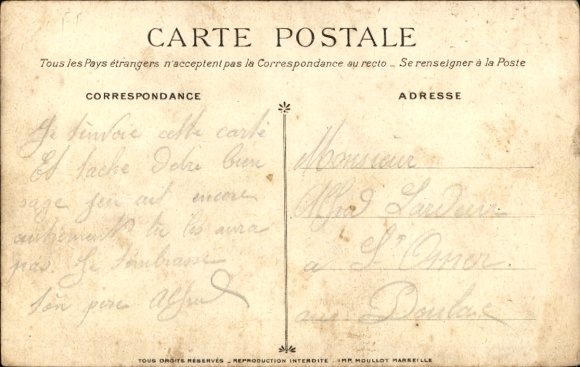 CARTE POSTALE
Tous les Pays étrangers n'acceptent pas la Correspondance au recto - Se renseigner à la Poste
CORRESPONDANCE
Je t'envoie cette carte
Et tache detre bien
sage jen ait encore
autrement tu les aura
pas. Je t'embrasse
Ton pere Alfred
ADRESSE
Monsieur
Alfred
a St Omer
au
TOUS DROITS RÉSERVÉS - REPRODUCTION INTERDITE - IMP. MOULLOT MARSEILLE